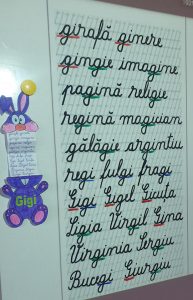 girafă ginere
gingie imagine
pagină religie
regină magician
gălăgie argintiu
regi fulgi fragi
Gigi Gigel Giuița
Ligia Virgil Gina
Virginia Sergiu
Bucegi Giurgiu
Gigi